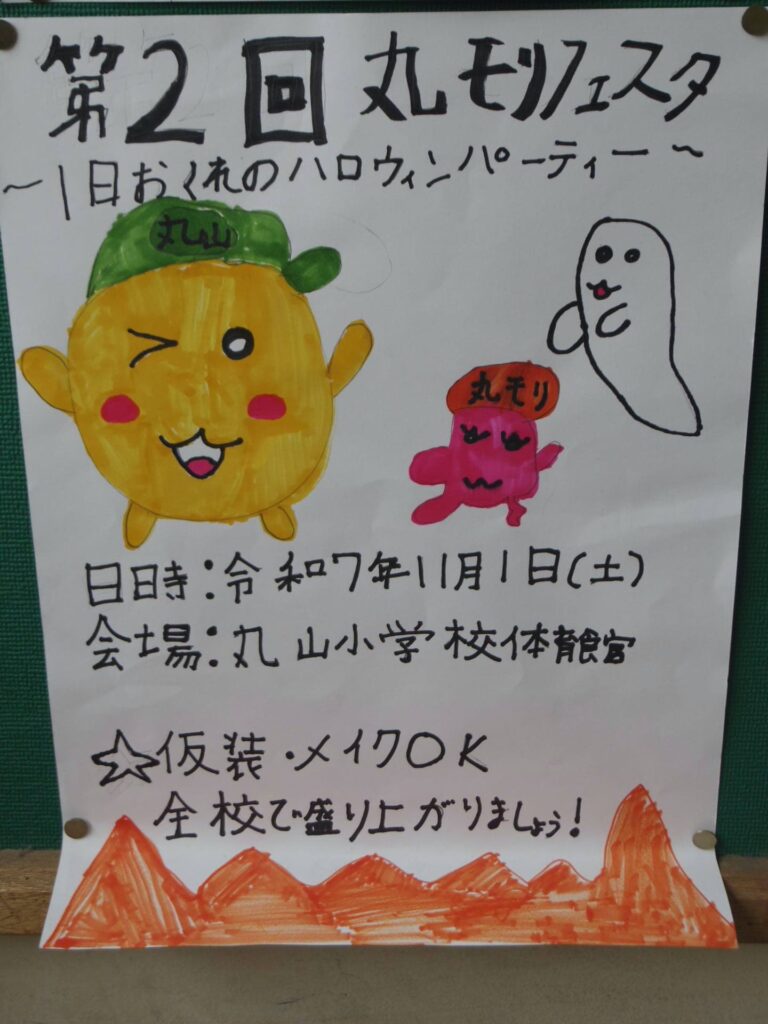 第2回丸モリフェスタ
～1日おくれのハロウィンパーティー～
丸山
丸モリ
日時：令和7年11月1日(土)
会場：丸山小学校体育館
☆仮装・メイクOK
全校で盛り上がりましょう！